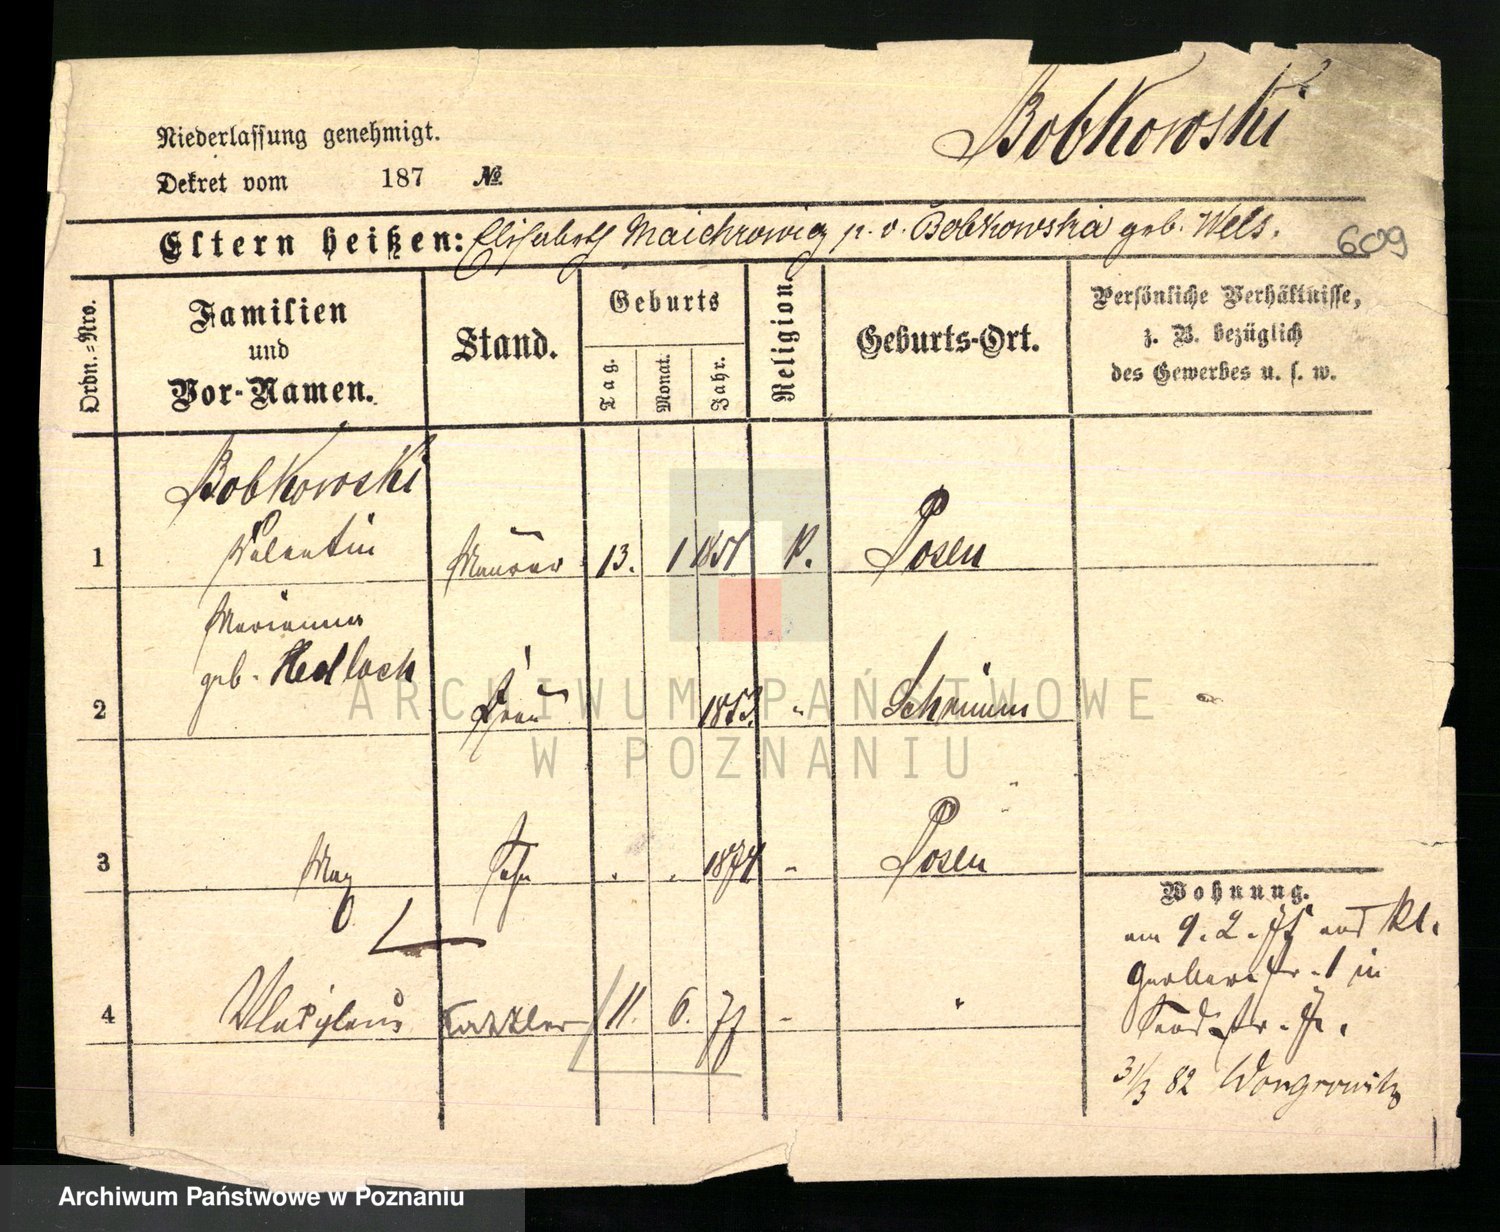 Bobkowski
Niederlassung genehmigt.
Dekret vom 187 №
Eltern heißen: Elisabeth Maichrowicz p. v. Bobkowska geb. Wels.
609
Ordn.-Nro.
Familien
und
Vor-Namen.
Stand.
Geburts
Tag.
Monat.
Jahr.
Religion.
Geburts-Ort.
Persönliche Verhältnisse,
z. B. bezüglich
des Gewerbes u. s. w.
Bobkowski
1 Valentin Maurer 13. 1 1851 K. Posen
Marianna
geb. Hedloch
2 Frau 1853. " Schrimm
3 Max Sohn " " 1874 " Posen
4 Wladyslaus 11. 6. 77 " "
Wohnung.
am 9. 2. 75 aus Kl.
Gerberstr. 1 in
3/3 82 Wongrowitz
ARCHIWUM PAŃSTWOWE
W POZNANIU
Archiwum Państwowe w Poznaniu